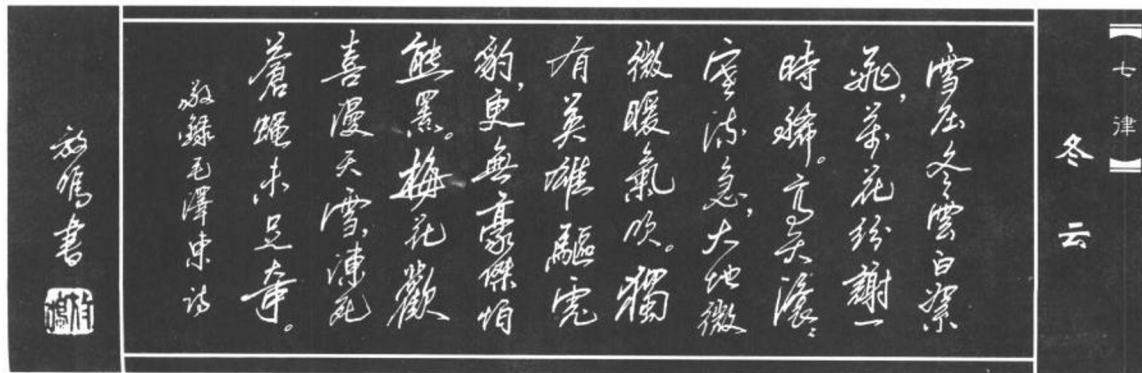 【七律】
冬云
雪压冬雲白絮
飛,萬花紛謝一
時稀。高天滚〻
寒流急,大地微
微暖氣吹。獨
有英雄驅虎
豹,更無豪傑怕
熊罴。梅花歡
喜漫天雪,凍死
蒼蝇未足奇。
敬録毛澤東詩
書